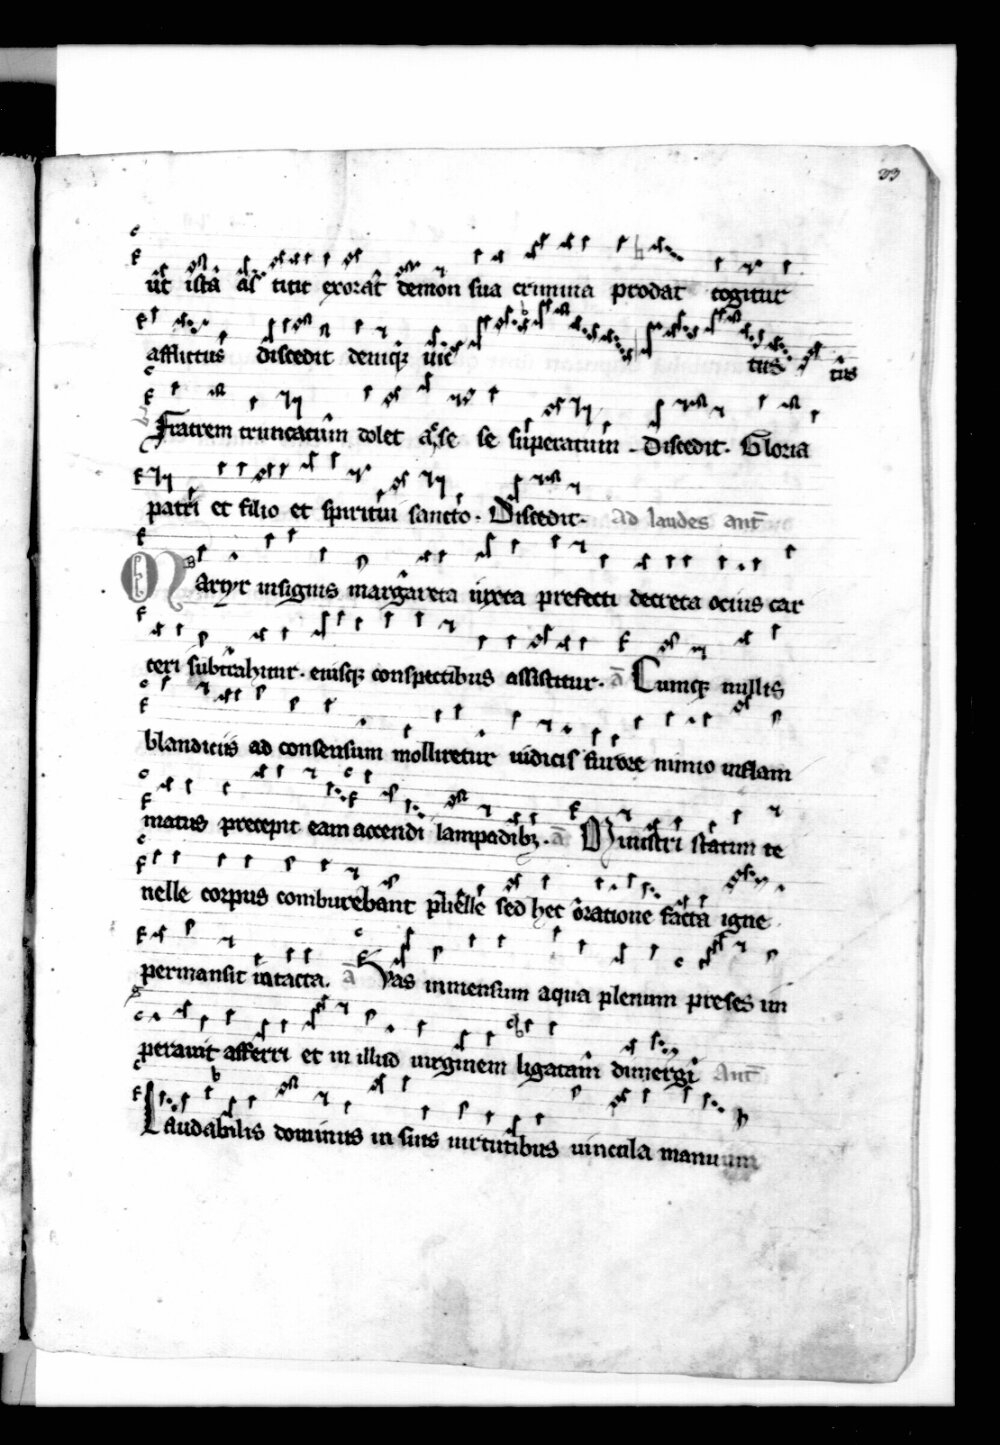 33
ut ista as titit exorat demon sua crimina prodat cogitur
afflictus discedit deniqꝫ uic tus tus
Fratrem truncatum dolet a se se superatum. Discedit. Gloria
patri et filio et spiritui sancto. Discedit. Ad laudes ant̄
Martyr insignis margareta iuxta prefecti decreta ocius car
ceri subtrahitur. eiusqꝫ conspectibus assistitur. ā Cumqꝫ nullis
blandiciis ad consensum molliretur iudicis furore nimio inflam
matus precepit eam accendi lampadibꝫ. ā Ministri statim te
nelle corpus comburebant puelle sed hec oratione facta igne
permansit intacta. ā Vas inmensum aqua plenum preses im
perauit afferri et in illud uirginem ligatam dimergi Ant̄
Laudabilis dominus in suis uirtutibus uincula manuum